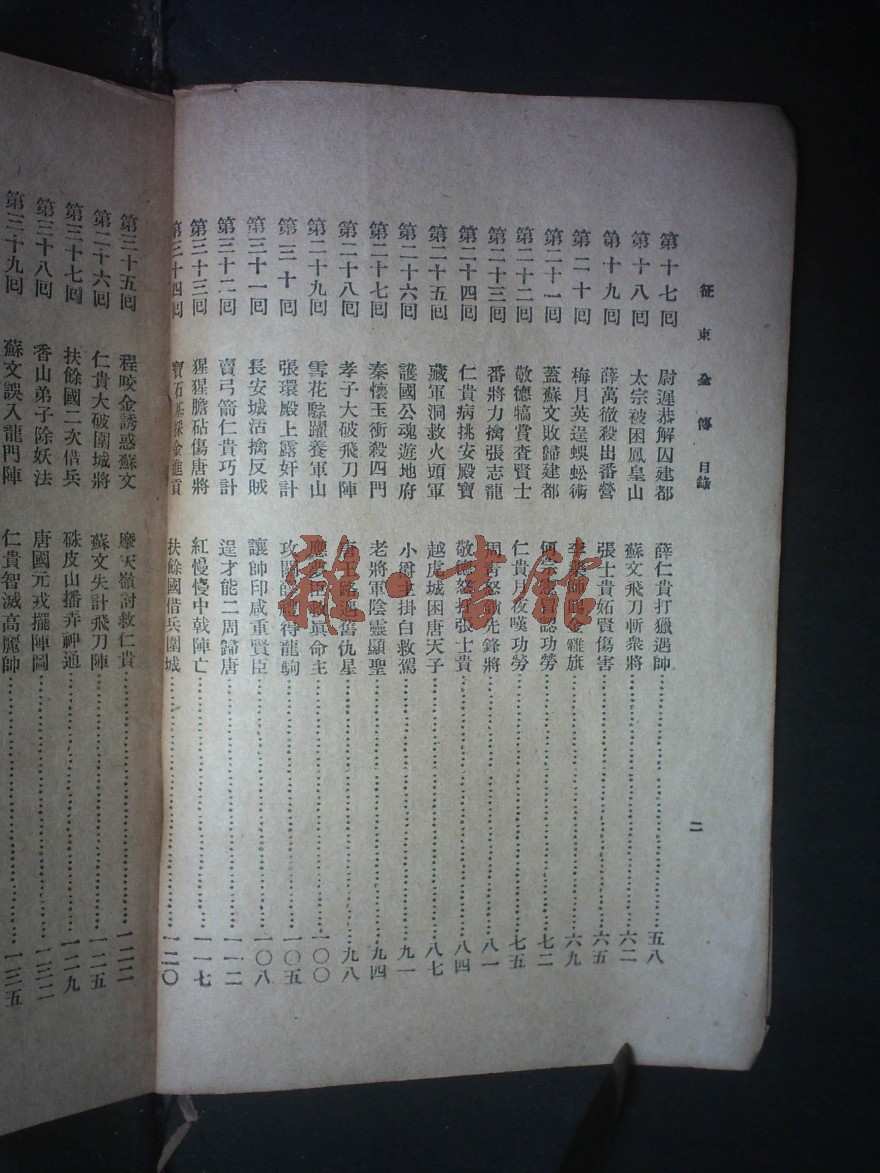 征東全傳 目錄
二
第十七回 尉遲恭解囚建都 薛仁貴打獵遇帥 五八
第十八回 太宗被困鳳皇山 蘇文飛刀斬衆將 六二
第十九回 薛萬徹殺出番營 張士貴妬賢傷害 六五
第二十回 梅月英逞蜈蚣術 李 賜金雞旗 六九
第二十一回 蓋蘇文敗歸建都 冒認功勞 七二
第二十二回 敬德犒賞查賢士 仁貴月夜嘆功勞 七五
第二十三回 番將力擒張志龍 周青怒 先鋒將 八一
第二十四回 仁貴病挑安殿寶 敬德怒打張士貴 八四
第二十五回 藏軍洞救火頭軍 越虎城困唐天子 八七
第二十六回 護國公魂遊地府 小爵主掛白救駕 九一
第二十七回 秦懷玉衝殺四門 老將軍陰靈顯聖 九四
第二十八回 孝子大破飛刀陣 唐王路遇舊仇星 九八
第二十九回 雪花鬃躍養軍山 應夢臣救眞命主 一〇〇
第三十回 張環殿上露奸計 攻 得龍駒 一〇五
第三十一回 長安城活擒反賊 讓帥印威重賢臣 一〇八
第三十二回 賣弓箭仁貴巧計 逞才能二周歸唐 一一二
第三十三回 猩猩膽砧傷唐將 紅慢慢中戟陣亡 一一七
第三十四回 寶石基採金進貢 扶餘國借兵圍城 一二〇
第三十五回 程咬金誘惑蘇文 摩天嶺討救仁貴 一二二
第二十六回 仁貴大破圍城將 蘇文失計飛刀陣 一二五
第三十七回 扶餘國二次借兵 硃皮山播弄神通 一二九
第三十八回 香山弟子除妖法 唐國元戎擺陣圖 一三二
第三十九回 蘇文誤入龍門陣 仁貴智滅高麗帥 一三五
雜·書館